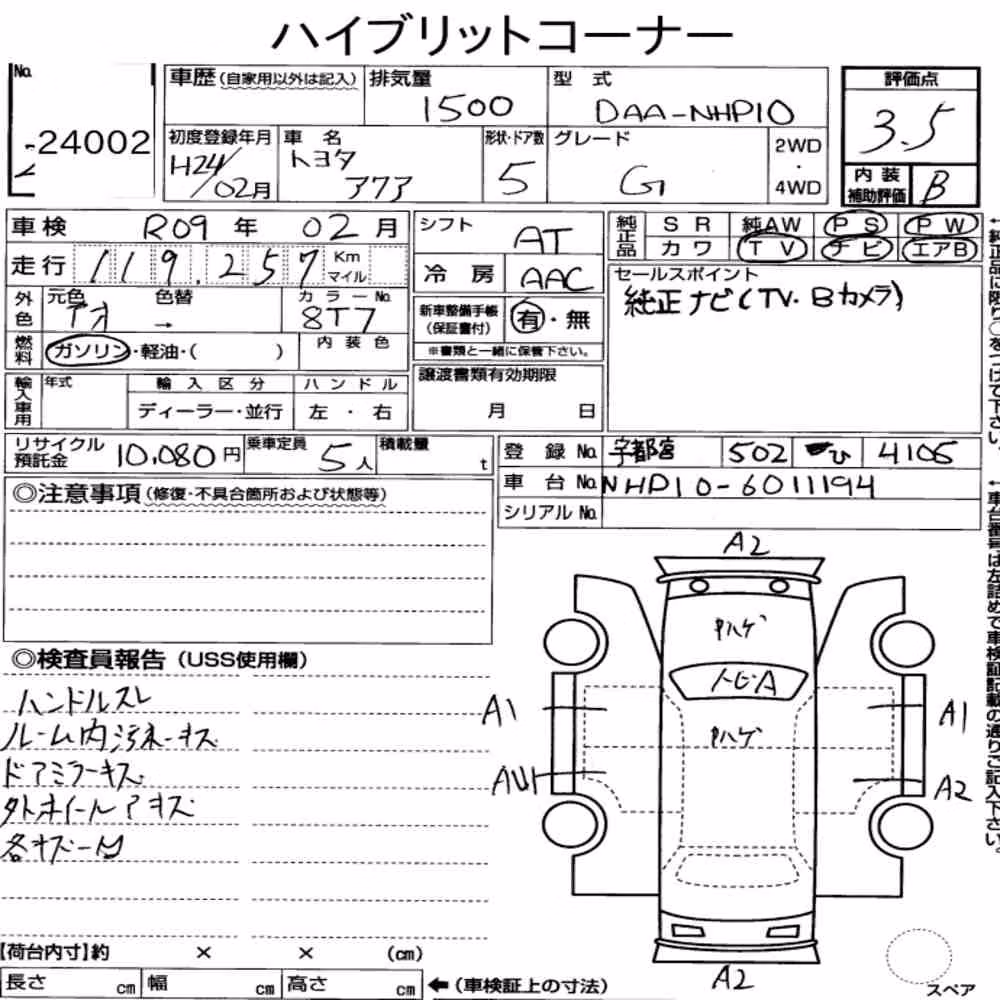 ハイブリットコーナー
No. 24002
車歴(自家用以外は記入)
排気量 1500
型 式 DAA-NHP10
評価点 3.5
初度登録年月 H24/02月
車 名 トヨタ アクア
形状・ドア数 5
グレード G
2WD ・ 4WD
内 装 補助評価 B
車検 R09 年 02 月
シフト AT
純正品 S R 純AW P S P W
カワ T V ナビ エアB
走行 119,257 Km マイル
冷 房 AAC
セールスポイント
純正ナビ(TV・Bカメラ)
外色 元色 アオ 色替 → カラーNo. 8T7
新車整備手帳(保証書付) 有・無
※書類と一緒に保管下さい。
燃料 ガソリン・軽油・( ) 内 装 色
輸入車用 年式 輸 入 区 分 ハ ン ド ル
ディーラー・並行 左 ・ 右
譲渡書類有効期限
月 日
リサイクル預託金 10,080円 乗車定員 5人 積載量 t
登 録 No. 宇都宮 502 ひ 4106
車 台 No. NHP10-6011194
シリアル No.
◎注意事項(修復・不具合箇所および状態等)
◎検査員報告(USS使用欄)
ハンドルスレ
ルーム内汚れキズ
ドアミラーキズ
外ホイールアキズ
各キズ
A2
ハゲ
A
A1
ハゲ
A1
A2
A2
スペア
【荷台内寸】約 × × (cm)
長さ cm 幅 cm 高さ cm ←(車検証上の寸法)
←純正品に限り○をつけて下さい。
←車台番号は左詰めで車検証記載の通りご記入下さい。